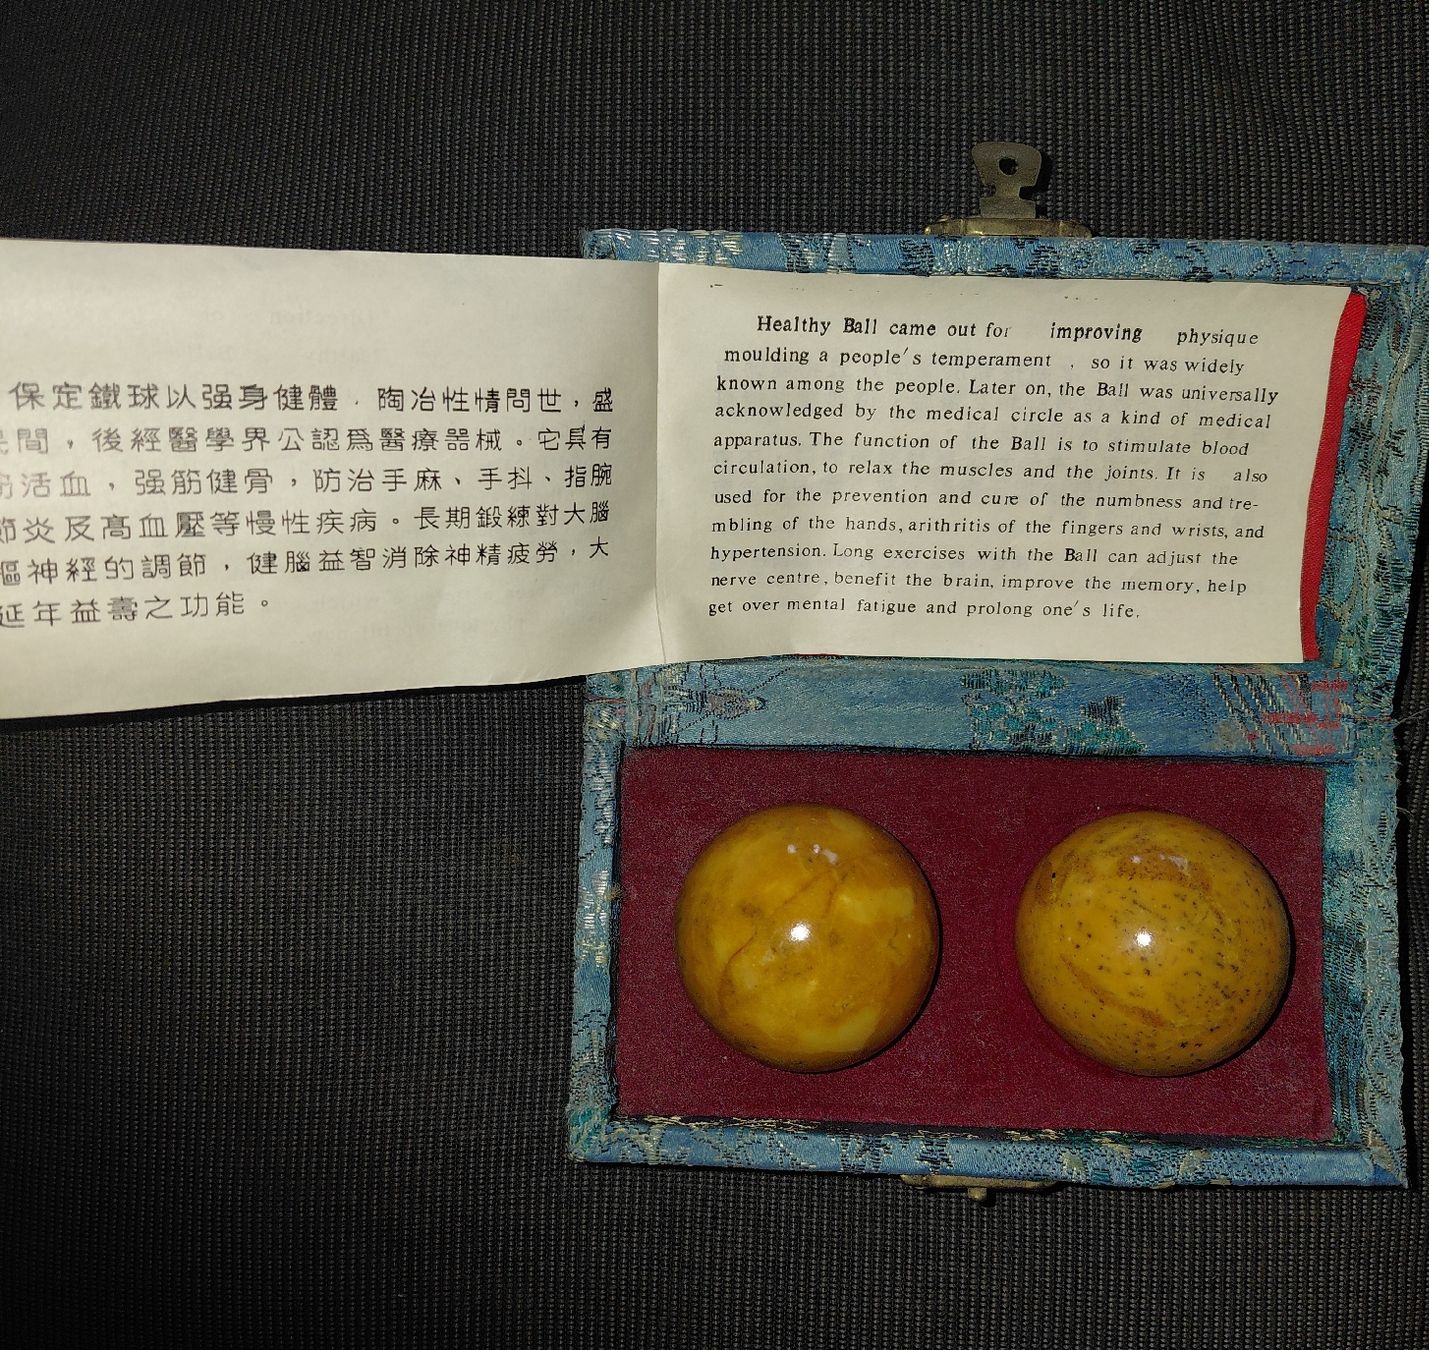 保定鐵球以强身健體，陶冶性情問世，盛
間，後經醫學界公認爲醫療器械。它具有
活血，强筋健骨，防治手麻、手抖、指腕
節炎及高血壓等慢性疾病。長期鍛練對大腦
樞神經的調節，健腦益智消除神精疲勞，大
延年益壽之功能。
Healthy Ball came out for improving physique
moulding a people's temperament , so it was widely
known among the people. Later on, the Ball was universally
acknowledged by the medical circle as a kind of medical
apparatus. The function of the Ball is to stimulate blood
circulation, to relax the muscles and the joints. It is also
used for the prevention and cure of the numbness and tre-
mbling of the hands, arithritis of the fingers and wrists, and
hypertension. Long exercises with the Ball can adjust the
nerve centre, benefit the brain, improve the memory, help
get over mental fatigue and prolong one's life.